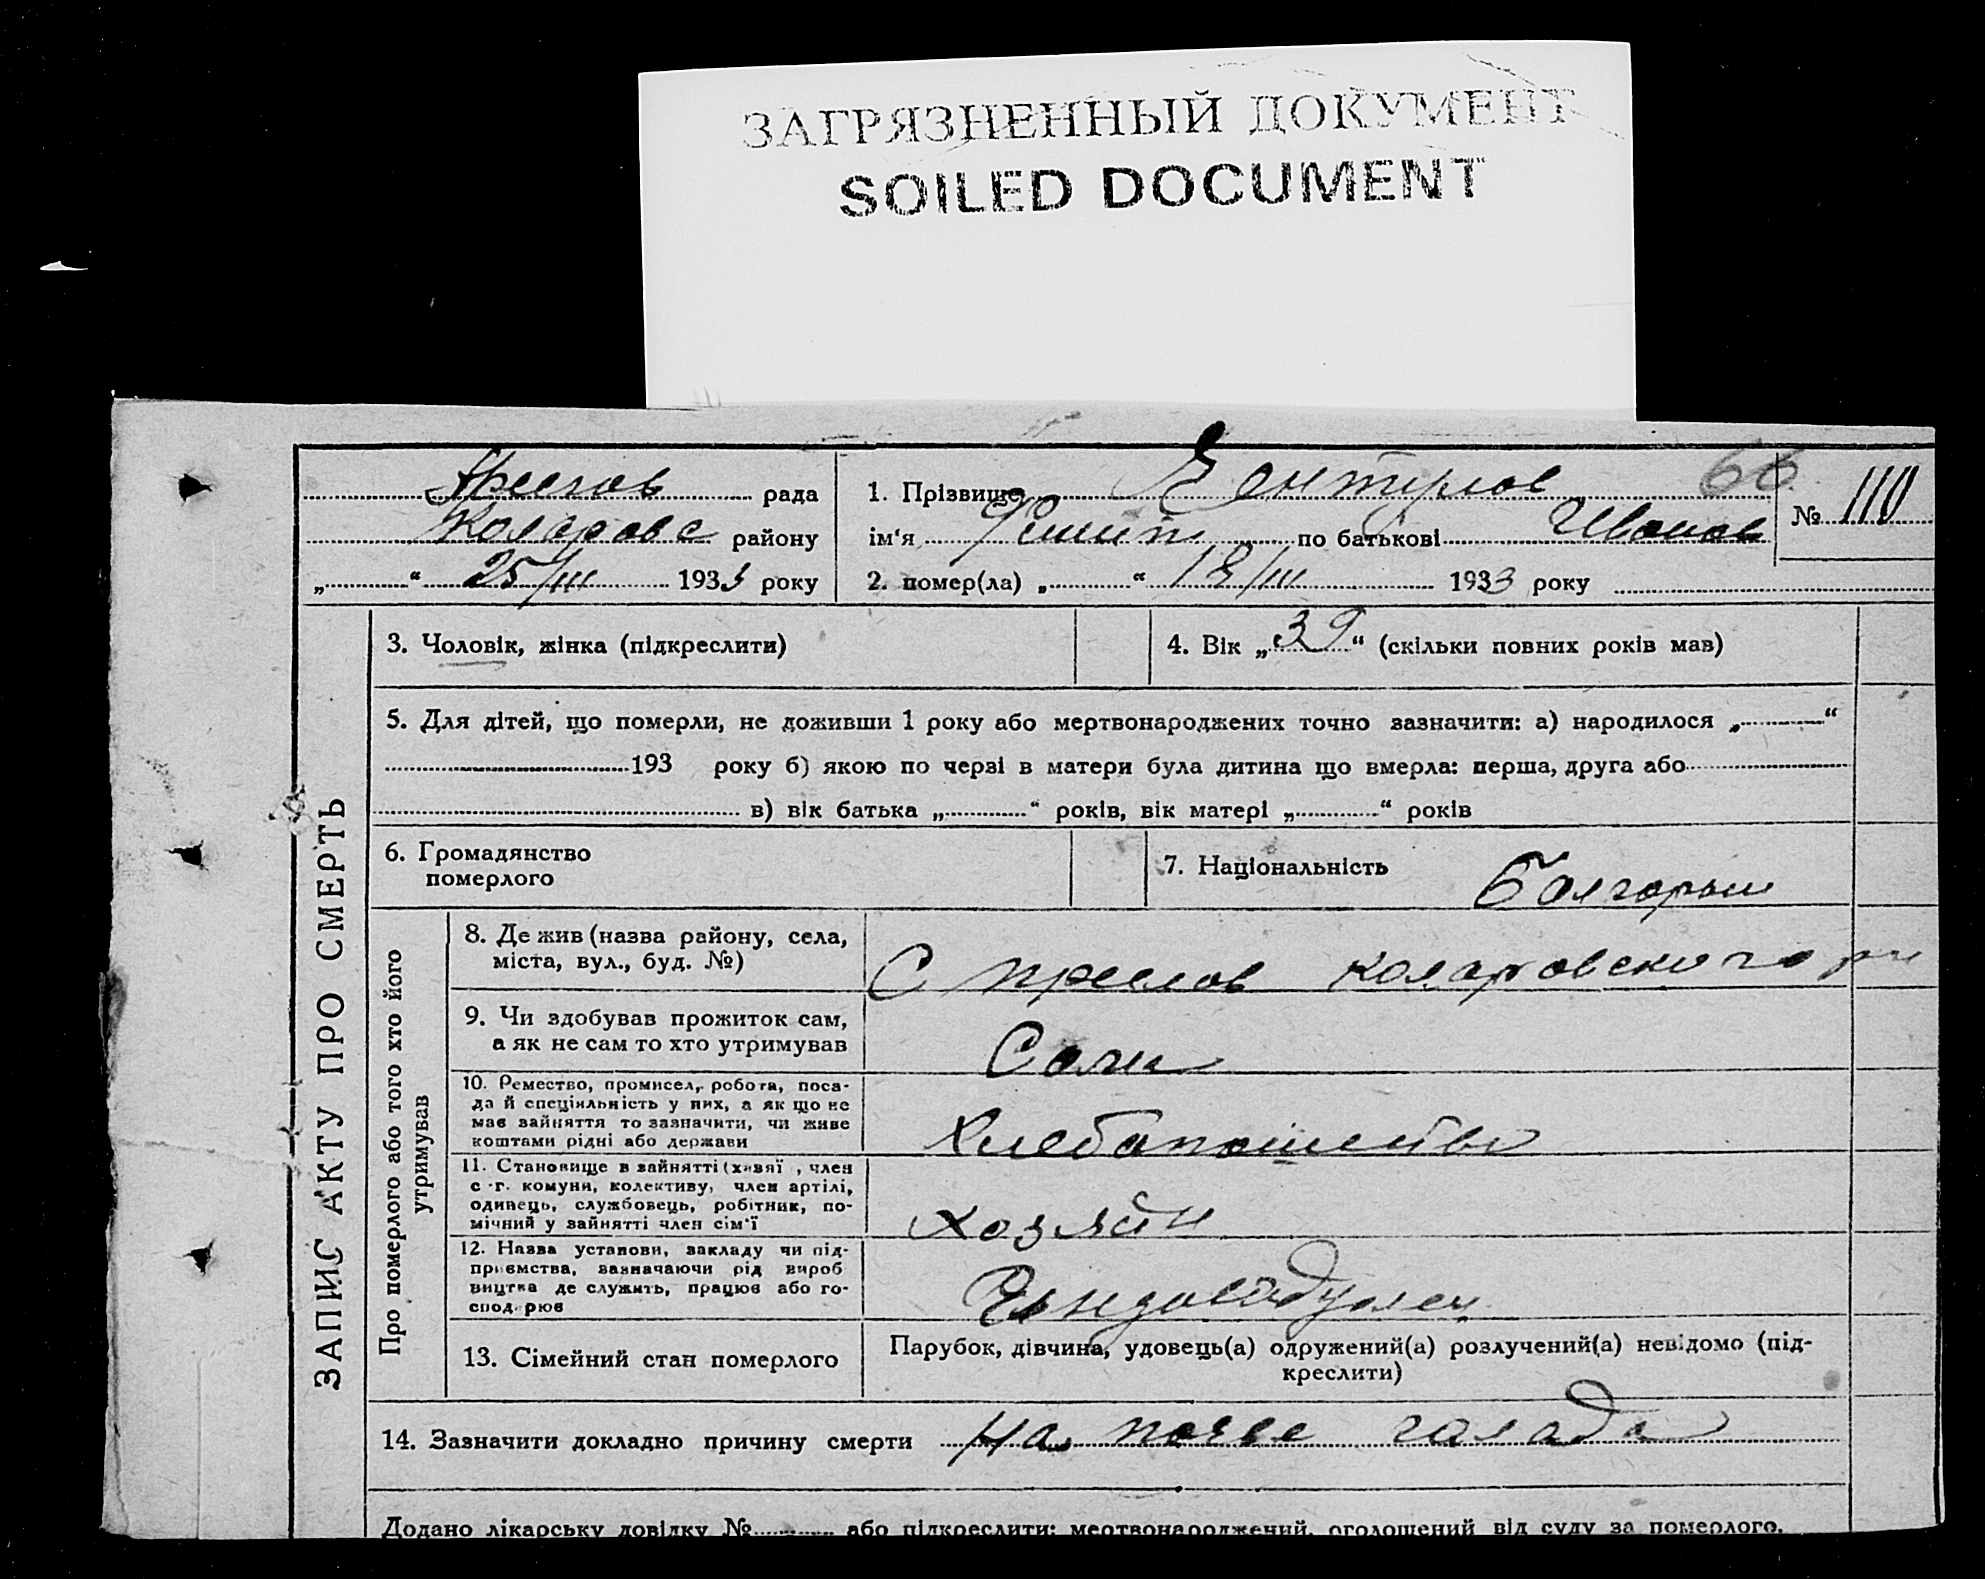 ЗАГРЯЗНЕННЫЙ ДОКУМЕНТ
SOILED DOCUMENT
Преслов рада
Коларовс району
„ “ 25/III 1933 року
1. Прізвище 66
ім'я по батькові Иванов
2. помер(ла) „ “ 18/III 1933 року
№ 110
ЗАПИС АКТУ ПРО СМЕРТЬ
3. Чоловік, жінка (підкреслити)
4. Вік „39“ (скільки повних років мав)
5. Для дітей, що померли, не доживши 1 року або мертвонароджених точно зазначити: а) народилося „ “
193 року б) якою по черзі в матери була дитина що вмерла: перша, друга або
в) вік батька „ “ років, вік матері „ “ років
6. Громадянство
померлого
7. Національність Болгарын
Про померлого або того хто його
утримував
8. Де жив (назва району, села,
міста, вул., буд. №)
С Преслов Коларовского рн
9. Чи здобував прожиток сам,
а як не сам то хто утримував
Сам
10. Ремество, промисел, робота, поса-
да й спеціяльність у них, а як що не
має зайняття то зазначити, чи живе
коштами рідні або держави
Хлебапашество
11. Становище в зайнятті (хазяї , член
с.-г. комуни, колективу, член артілі,
одинець, службовець, робітник, по-
мічний у зайнятті член сім'ї
Хозяйн
12. Назва установи, закладу чи під-
приємства, зазначаючи рід вироб
ництва де служить, працює або го-
сподарює
13. Сімейний стан померлого
Парубок, дівчина, удовець(а) одружений(а) розлучений(а) невідомо (під-
креслити)
14. Зазначити докладно причину смерти На почве галада
Додано лікарську довідку № або підкреслити: мертвонароджений, оголошений від суду за померлого.